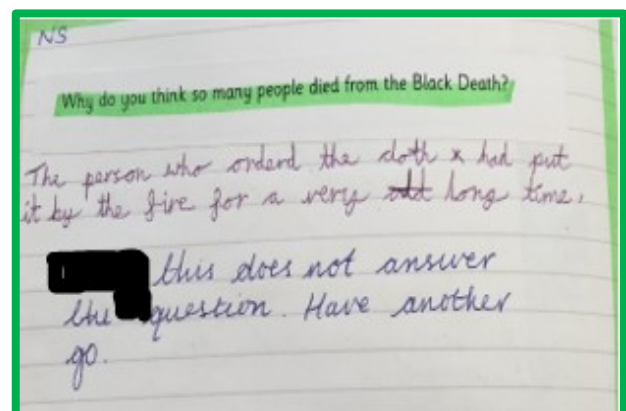 NS
Why do you think so many people died from the Black Death?
The person who orderd the cloth x had put
it by the fire for a very odd long time.
this does not answer
the question. Have another
go.